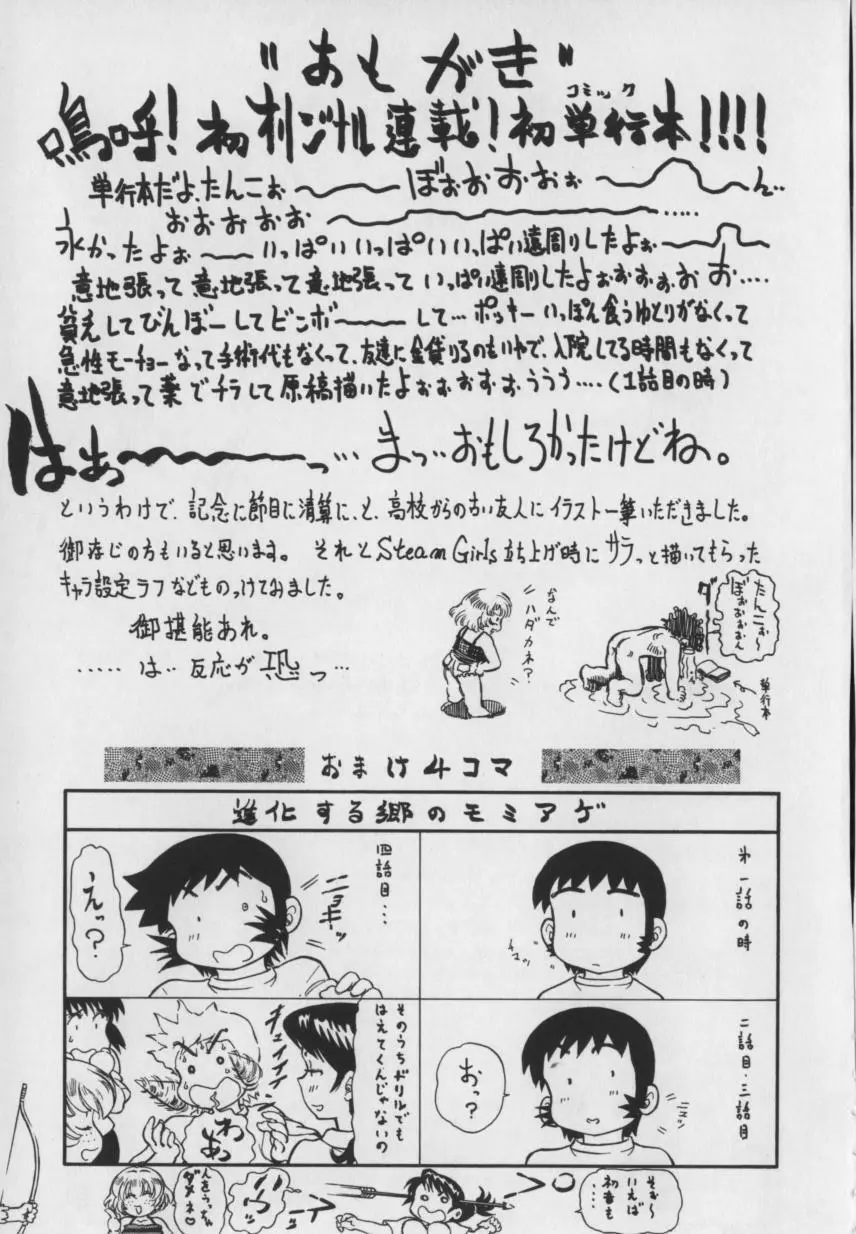 "あもがき"
嗚呼！初オリジナル連載！初単行本!!!!
コミック
単行本だよ、たんこぉ〜〜ぼぉぉおおぉ〜〜ん‥
おぉぉぉぉぉ〜〜〜.....
永かったよぉ〜〜いっぱいいっぱいいっぱい遠周りしたよぉ〜〜
意地張って意地張って意地張っていっぱい遠周りしたよぉぉぉぉぉぉ....
貧乏してびんぼーしてビンボ〜〜して…ポッキーいっぽん食うゆとりがなくって
急性モーチョーなって手術代もなくって、友達に金貸りるのもいやで、入院してる時間もなくって
意地張って薬でチラして原稿描いたよぉぉぉぉぉううう....(1話目の時)
はぁっ〜〜〜〜っ…まっ…おもしろかったけどね。
というわけで、記念に節目に清算に、と、高校からの古い友人にイラスト一筆いただきました。
御存じの方もいると思います。それとSteam Girls立ち上げ時にサラっと描いてもらった
キャラ設定ラフなどものっけておみました。
御堪能あれ。
.....は‥反応が恐っ…
なんで
ハダカネ？
たんこぉ〜
ぼぉぉぉぉん
ダー
単行本
おまけ4コマ
進化する郷のモミアゲ
オ一話の時
チョッ
二話目・三話目
おっ？
ニョッ
四話目…
ニョキーッ
えっ？
そのうちドリルでも
はえてくんじゃないの
キュイイイイン
わぁっ
そぉ〜
いえば
初音も
....
人をうっちゃ
ダメネ♡